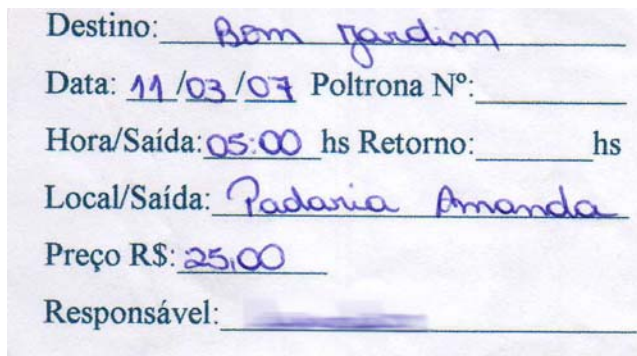 Destino: Bom Jardim
Data: 11/03/07 Poltrona Nº:
Hora/Saída: 05:00 hs Retorno: hs
Local/Saída: Padaria Amanda
Preço R$: 25,00
Responsável: